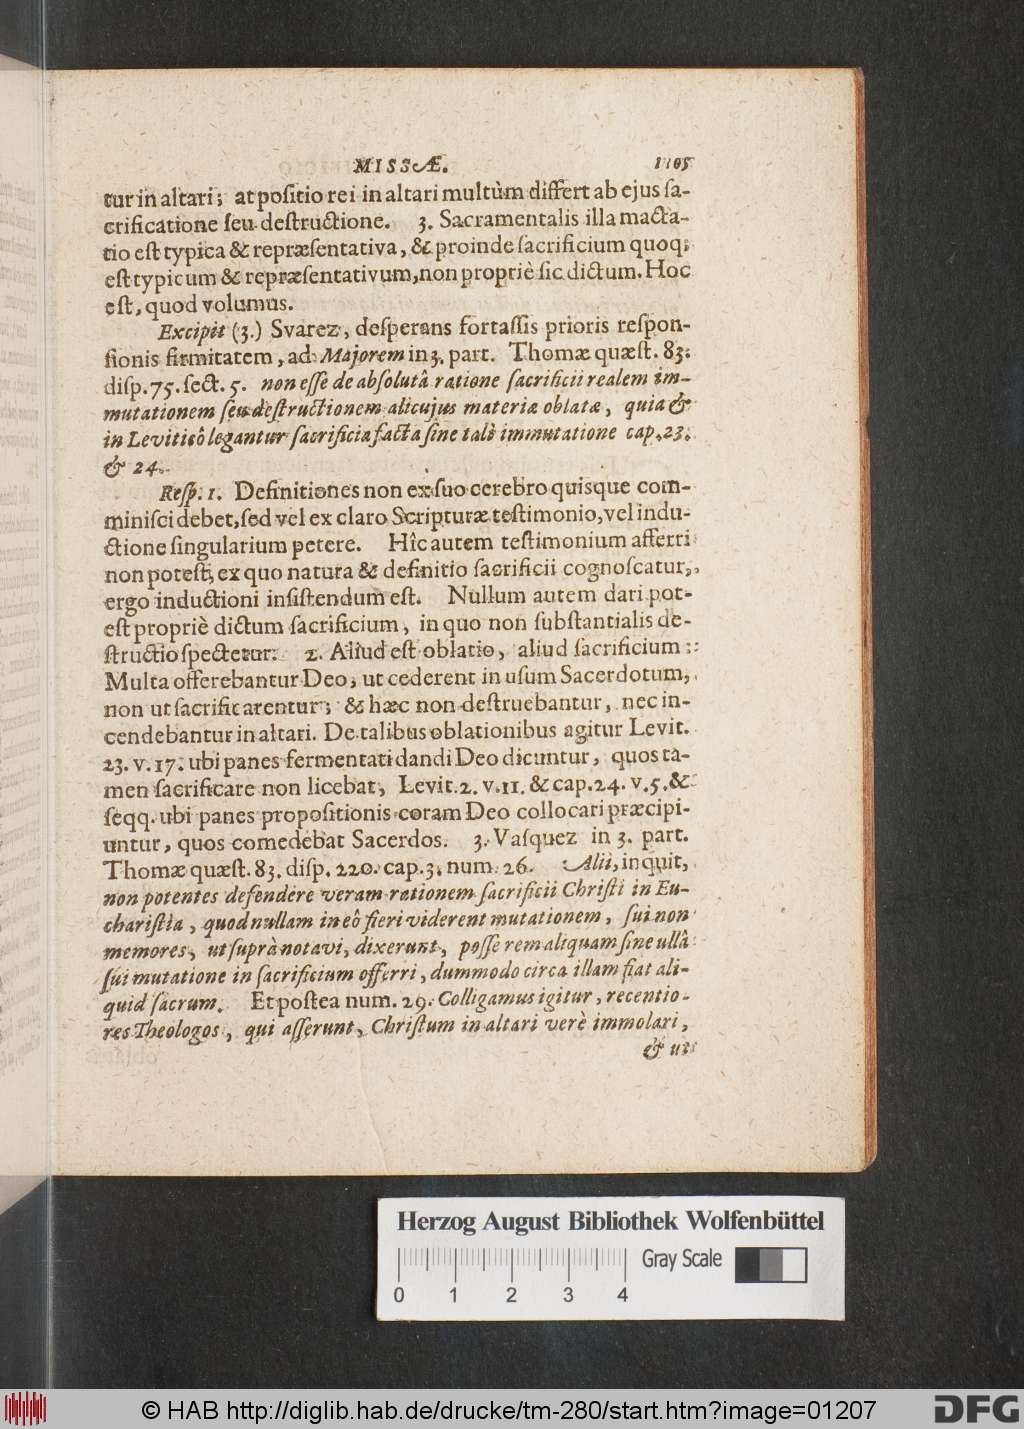 MISSÆ. 1105
tur in altari; at positio rei in altari multùm differt ab ejus sa-
crificatione seu destructione. 3. Sacramentalis illa macta-
tio est typica & repræsentativa, & proinde sacrificium quoq;
est typicum & repræsentativum, non propriè sic dictum. Hoc
est, quod volumus.
Excipit (3.) Svarez, desperans fortassis prioris respon-
sionis firmitatem, ad Majorem in 3. part. Thomæ quæst. 83.
disp. 75. sect. 5. non esse de absolutâ ratione sacrificii realem im-
mutationem seu destructionem alicujus materiæ oblatæ, quia &
in Leviticô legantur sacrificia facta sine tali immutatione cap. 23.
& 24.
Resp. 1. Definitiones non ex suo cerebro quisque com-
minisci debet, sed vel ex claro Scripturæ testimonio, vel indu-
ctione singularium petere. Hîc autem testimonium afferri
non potest, ex quo natura & definitio sacrificii cognoscatur,
ergo inductioni insistendum est. Nullum autem dari pot-
est propriè dictum sacrificium, in quo non substantialis de-
structio spectetur. 2. Aliud est oblatio, aliud sacrificium:
Multa offerebantur Deo, ut cederent in usum Sacerdotum,
non ut sacrificarentur; & hæc non destruebantur, nec in-
cendebantur in altari. De talibus oblationibus agitur Levit.
23. v. 17. ubi panes fermentati dandi Deo dicuntur, quos ta-
men sacrificare non licebat, Levit. 2. v. 11. & cap. 24. v. 5. &
seqq. ubi panes propositionis coram Deo collocari præcipi-
untur, quos comedebat Sacerdos. 3. Vasquez in 3. part.
Thomæ quæst. 83. disp. 220. cap. 3. num. 26. Alii, inquit,
non potentes defendere veram rationem sacrificii Christi in Eu-
charistia, quod nullam in eô fieri viderent mutationem, sui non
memores, ut suprà notavi, dixerunt, posse rem aliquam sine ullâ
sui mutatione in sacrificium offerri, dummodo circa illam fiat ali-
quid sacrum. Et postea num. 29. Colligamus igitur, recentio-
res Theologos, qui asserunt, Christum in altari verè immolari,
& ut
Herzog August Bibliothek Wolfenbüttel
Gray Scale
0 1 2 3 4
© HAB http://diglib.hab.de/drucke/tm-280/start.htm?image=01207
DFG